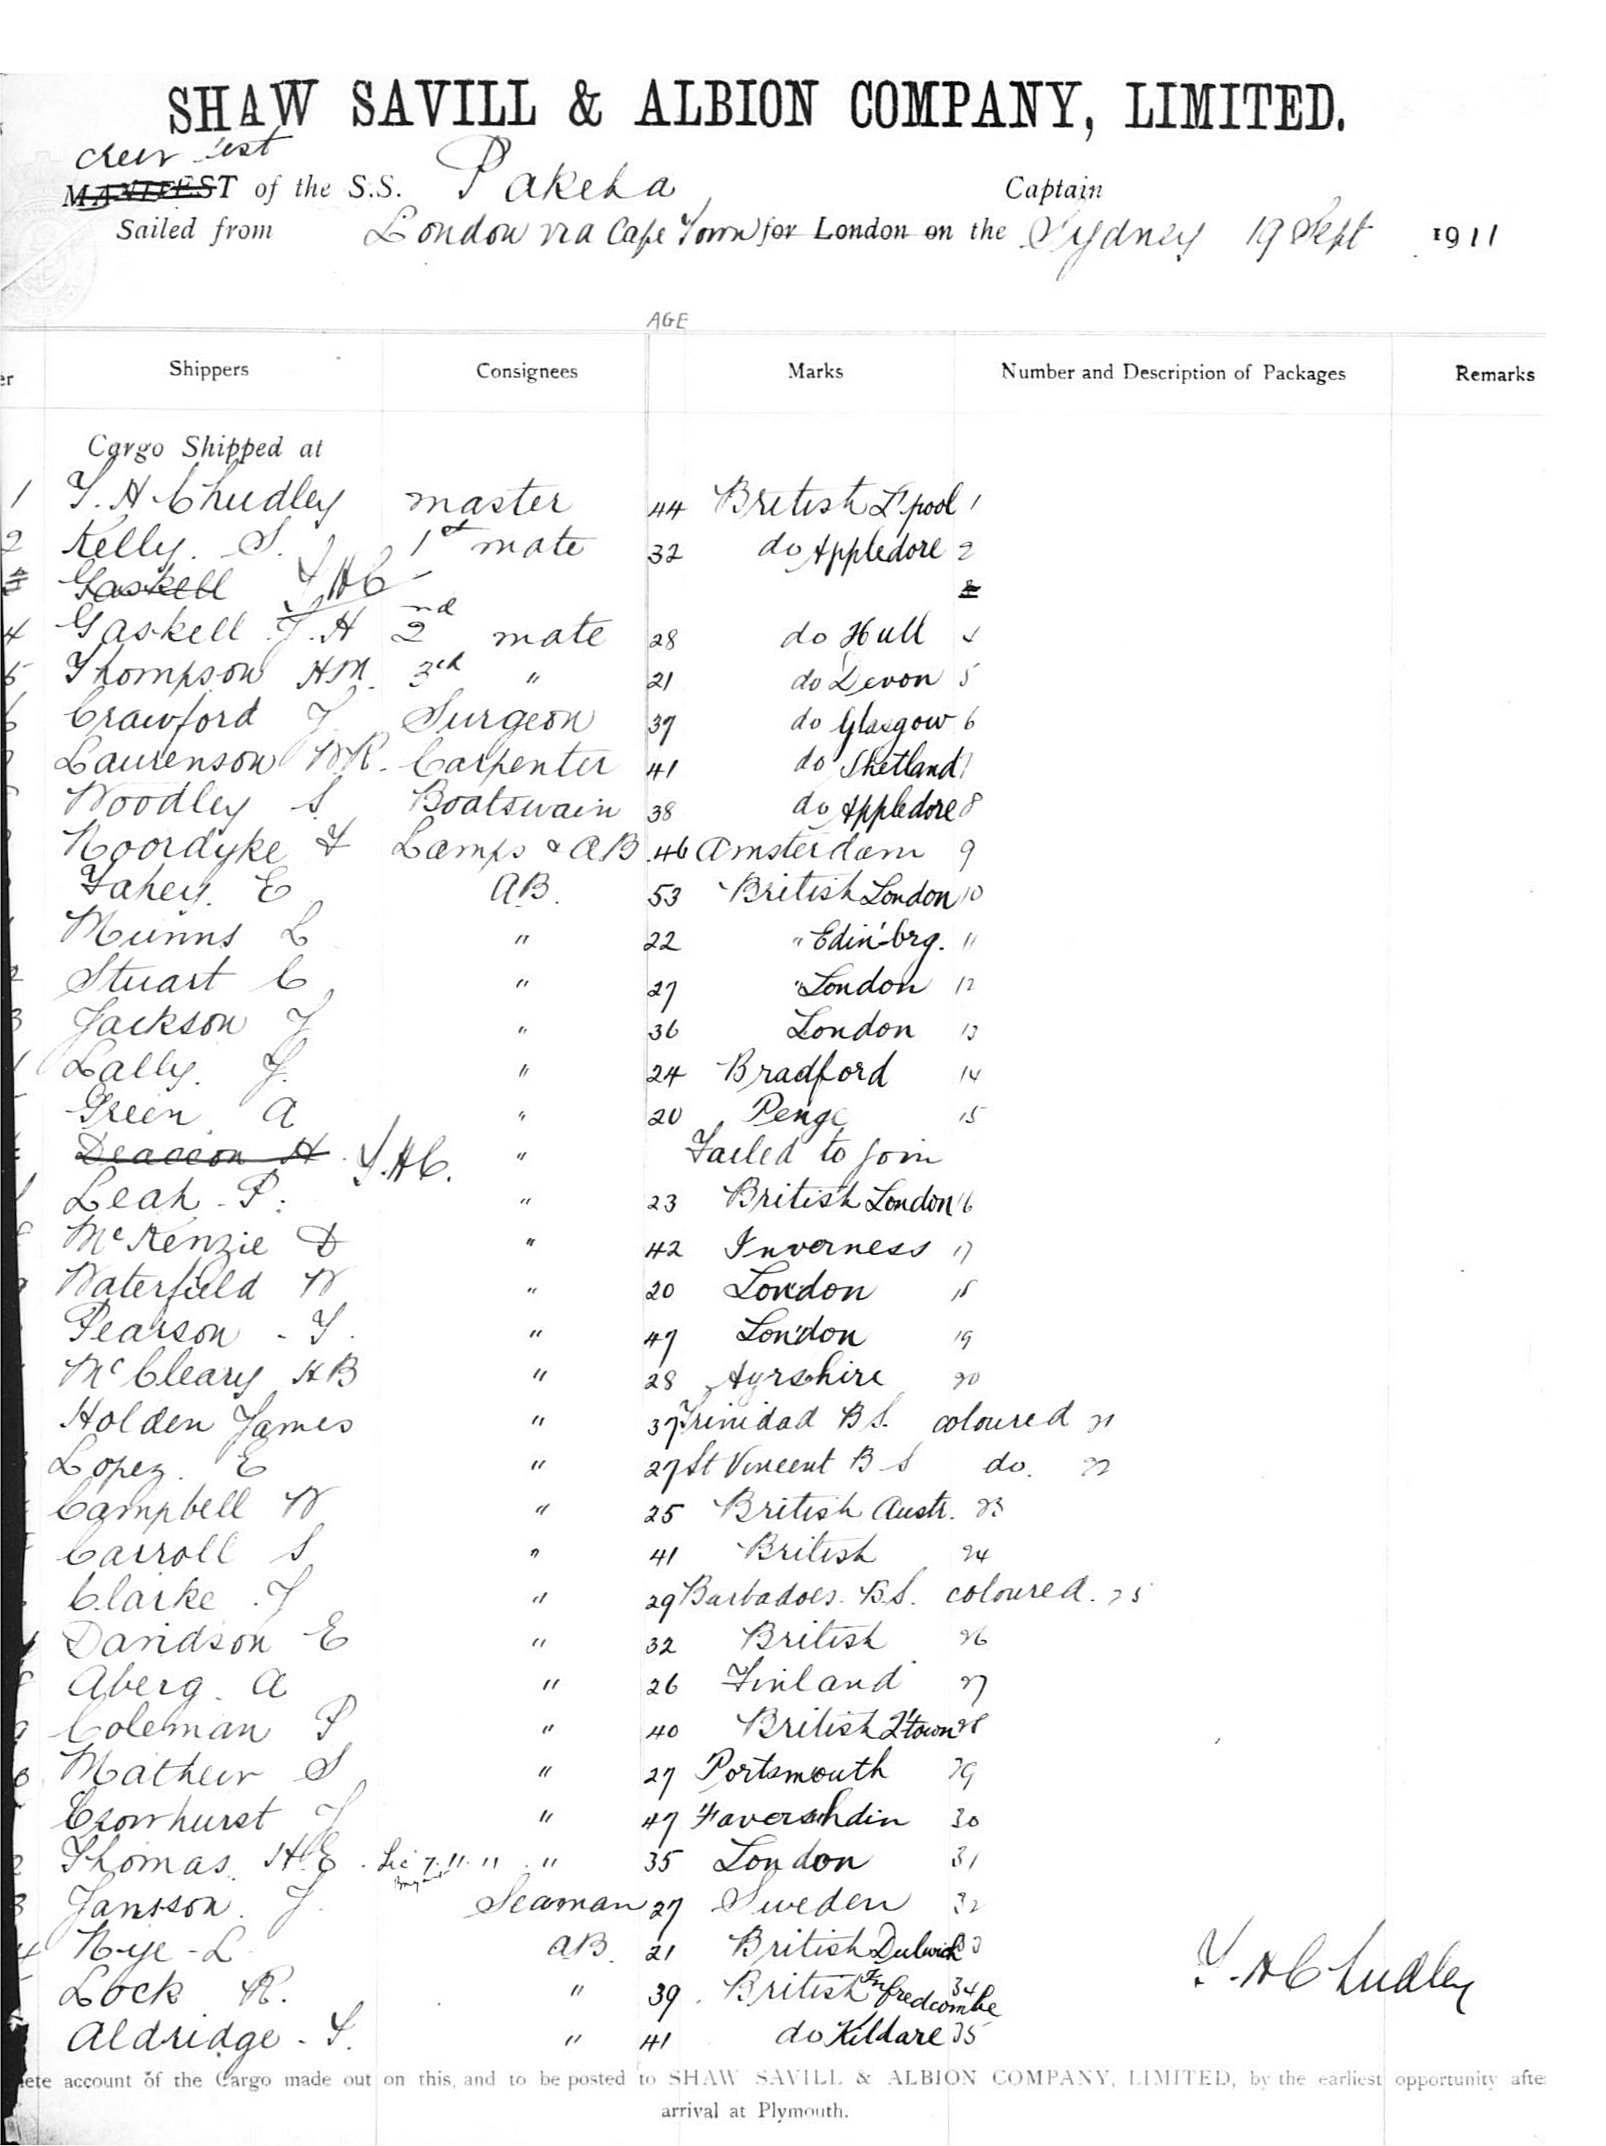 SHAW SAVILL & ALBION COMPANY, LIMITED.
Crew List
MANIFEST of the S.S. Pakeha Captain
Sailed from London via Cape Town for London on the Sydney 19 Sept 1911
AGE
er Shippers Consignees Marks Number and Description of Packages Remarks
Cargo Shipped at
1 T. H Chudley master 44 British L'pool 1
2 Kelly. S. 1st mate 32 do Appledore 2
Gaskell T H C
4 Gaskell J. H 2nd mate 28 do Hull 4
5 Thompson HM. 3rd " 21 do Devon 5
6 Crawford J. Surgeon 39 do Glasgow 6
Laurenson W.R. Carpenter 41 do Shetland 7
Woodley S Boatswain 38 do Appledore 8
Noordyke F Lamps & AB. 46 Amsterdam 9
Fahey. E AB. 53 British London 10
Munns L " 22 " Edin'brg. 11
2 Stuart C " 27 " London 12
3 Jackson J " 36 London 13
Lally. J. " 24 Bradford 14
Green. A " 20 Penge 15
Deaccon H. T.H.C. " Failed to join
Leah - P: " 23 British London 16
McKenzie D " 42 Inverness 17
9 Waterfield W " 20 London 18
Pearson - T. " 47 London 19
McCleary HB " 28 Ayrshire 20
Holden James " 37 Trinidad B S. coloured 21
Lopez. E " 27 St Vincent B S do. 22
Campbell W " 25 British Austr. 23
Carroll S " 41 British 24
Clarke. J " 29 Barbadoes. B.S. coloured. 25
Davidson E " 32 British 26
Aberg. A " 26 Finland 27
9 Coleman P " 40 British Q'town 28
Mathew S " 27 Portsmouth 29
Crowhurst J " 47 30
2 Thomas. H.E. 7.11.11 " 35 London 31
3 Jansson. J. Seaman 27 Sweden 32
4 Nye - L AB. 21 British Dulwich 33
Lock R. " 39 British 34
Aldridge - T. " 41 do Kildare 35
T. H Chudley
lete account of the Cargo made out on this, and to be posted to SHAW SAVILL & ALBION COMPANY, LIMITED, by the earliest opportunity afte
arrival at Plymouth.